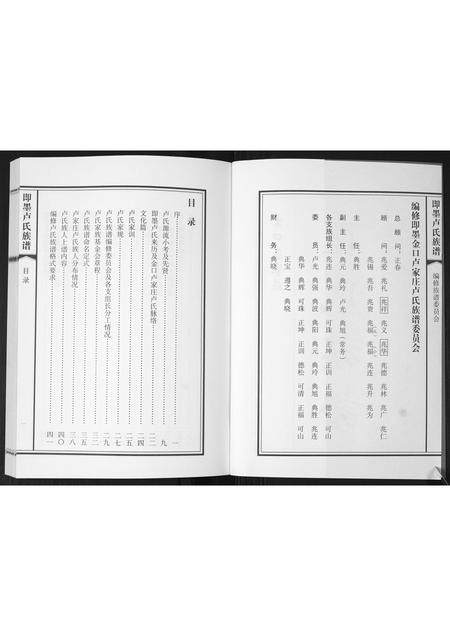 即墨卢氏族谱
编修族谱委员会
编修即墨金口卢家庄卢氏族谱委员会
总顾问：正春
顾问：兆爱 兆礼 兆祥 兆义 兆华 兆德 兆林 兆广 兆仁
兆锡 兆吾 兆贵 兆福 兆福 兆连 兆升 兆为
主任：典胜
副主任：典元 典玲 卢光 典旭（常务）
各支族组长：兆连 典华 典辉 可珠 正坤 正训 正福 德松 可山
委员：卢光 典强 典波 典阳 典元 典玲 典旭 典胜 兆连
典华 典辉 可珠 正坤 正训 德松 可清 正福 可山
正宝 遵之 典晓
财务：典晓
目录
序……一
卢氏溯流小考及先贤……九
即墨卢氏来历及金口卢家庄卢氏脉络……二二
文化篇……二四
卢氏家训……二五
卢氏家规……二七
卢氏家族基金会章程……二九
卢氏族谱编修委员会及各支组长分工情况……三二
卢氏族谱命名定式……三五
卢家庄卢氏族人分布情况……三八
卢氏族人上谱内容……四〇
编修卢氏族谱格式要求……四一
即墨卢氏族谱
目录